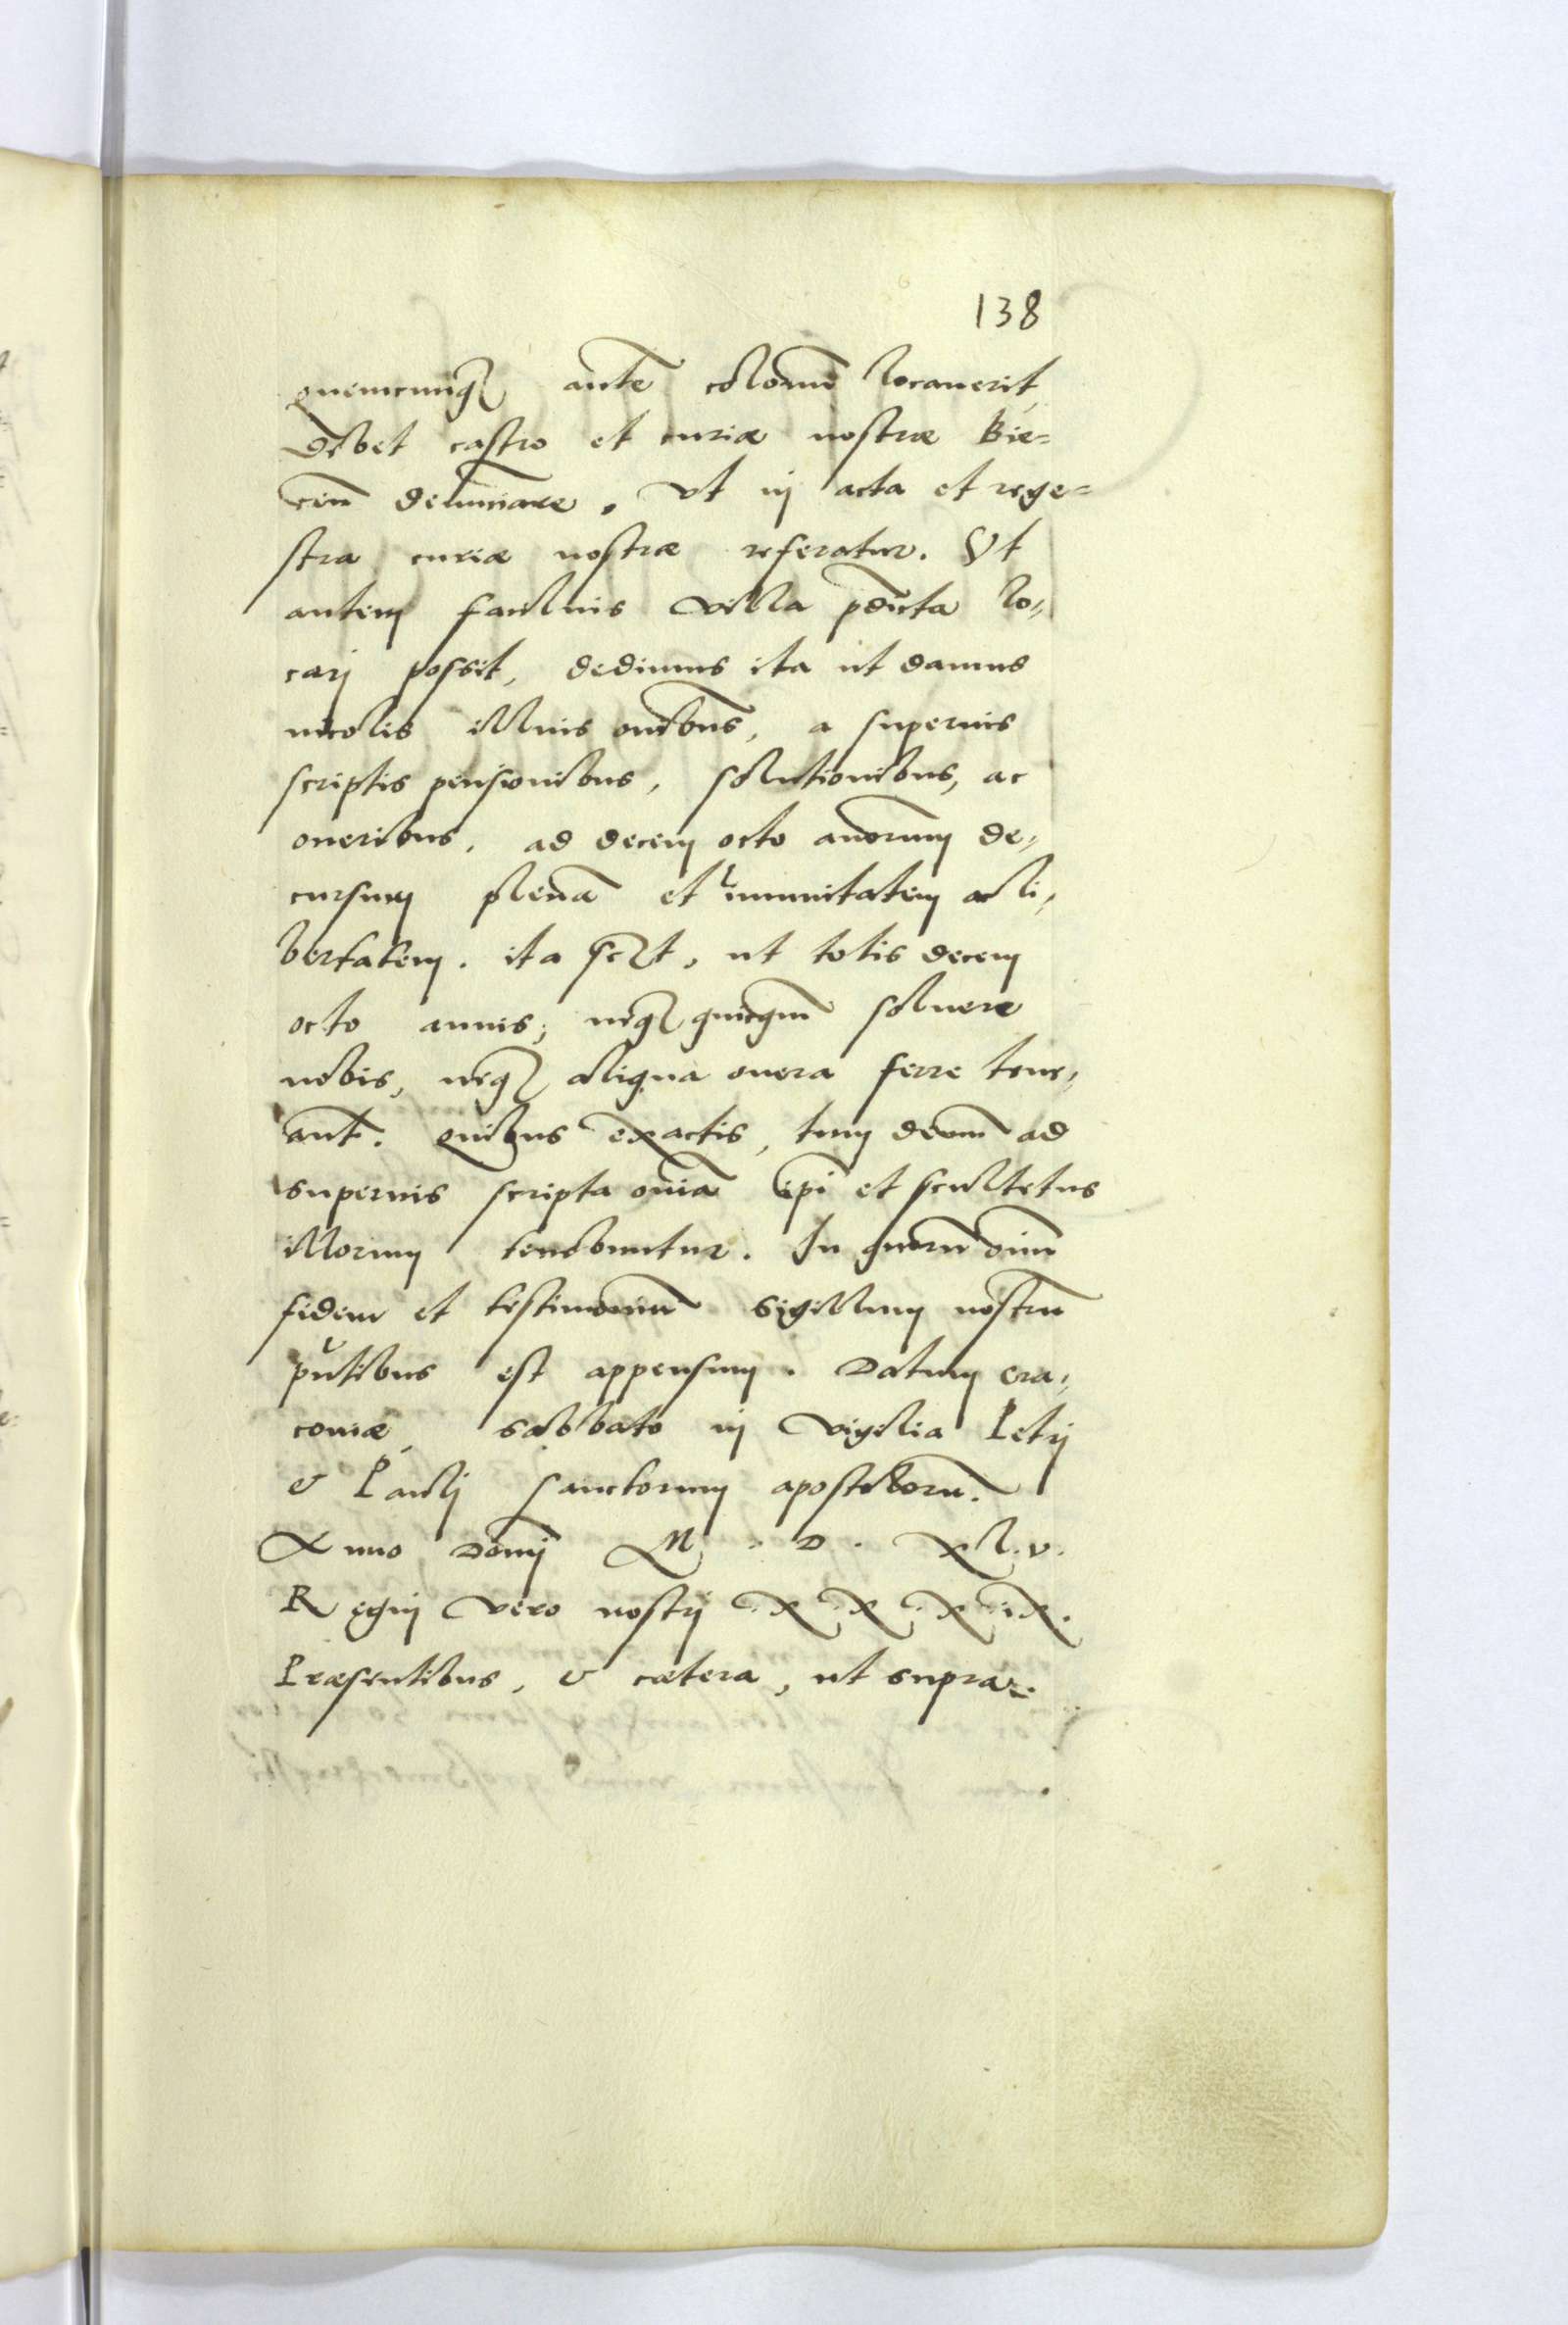 138
quemcunq₃ autē colonum locauerit
debet castro et curiæ nostræ Bie=
cēn denunciare, vt in acta et rege=
stra curiæ nostræ referatur. Vt
autem faciluis villa p̄dicta lo,
cari possit, dedimus ita ut damus
incolis illius om̄ibus, a superius
scriptis pensionibus, solutionibus, ac
oneribus, ad decem octo annorum de,
cursum plenā et immunitatem ac li,
bertatem. ita sc₃t, ut totis decem
octo annis, neq₃ quicqm̄ soluere
nobis, neq₃ aliqua onera ferre tene,
ant̄. quibus exactis, tum demū ad
superius scripta om̄ia ip̄i et scultetus
illorum tenebuntur. In quorū om̄m
fidem et testimoniū sigillum nostrū
pn̄tibus est appensum. Datum cra,
coniæ, sabbato in vigilia Petri
& Pauli sanctorum apostolorū.
Anno Domī M . D . xl.v.
Regni vero nostri .x.x.x.ix.
Præsentibus, & cætera, ut supra.